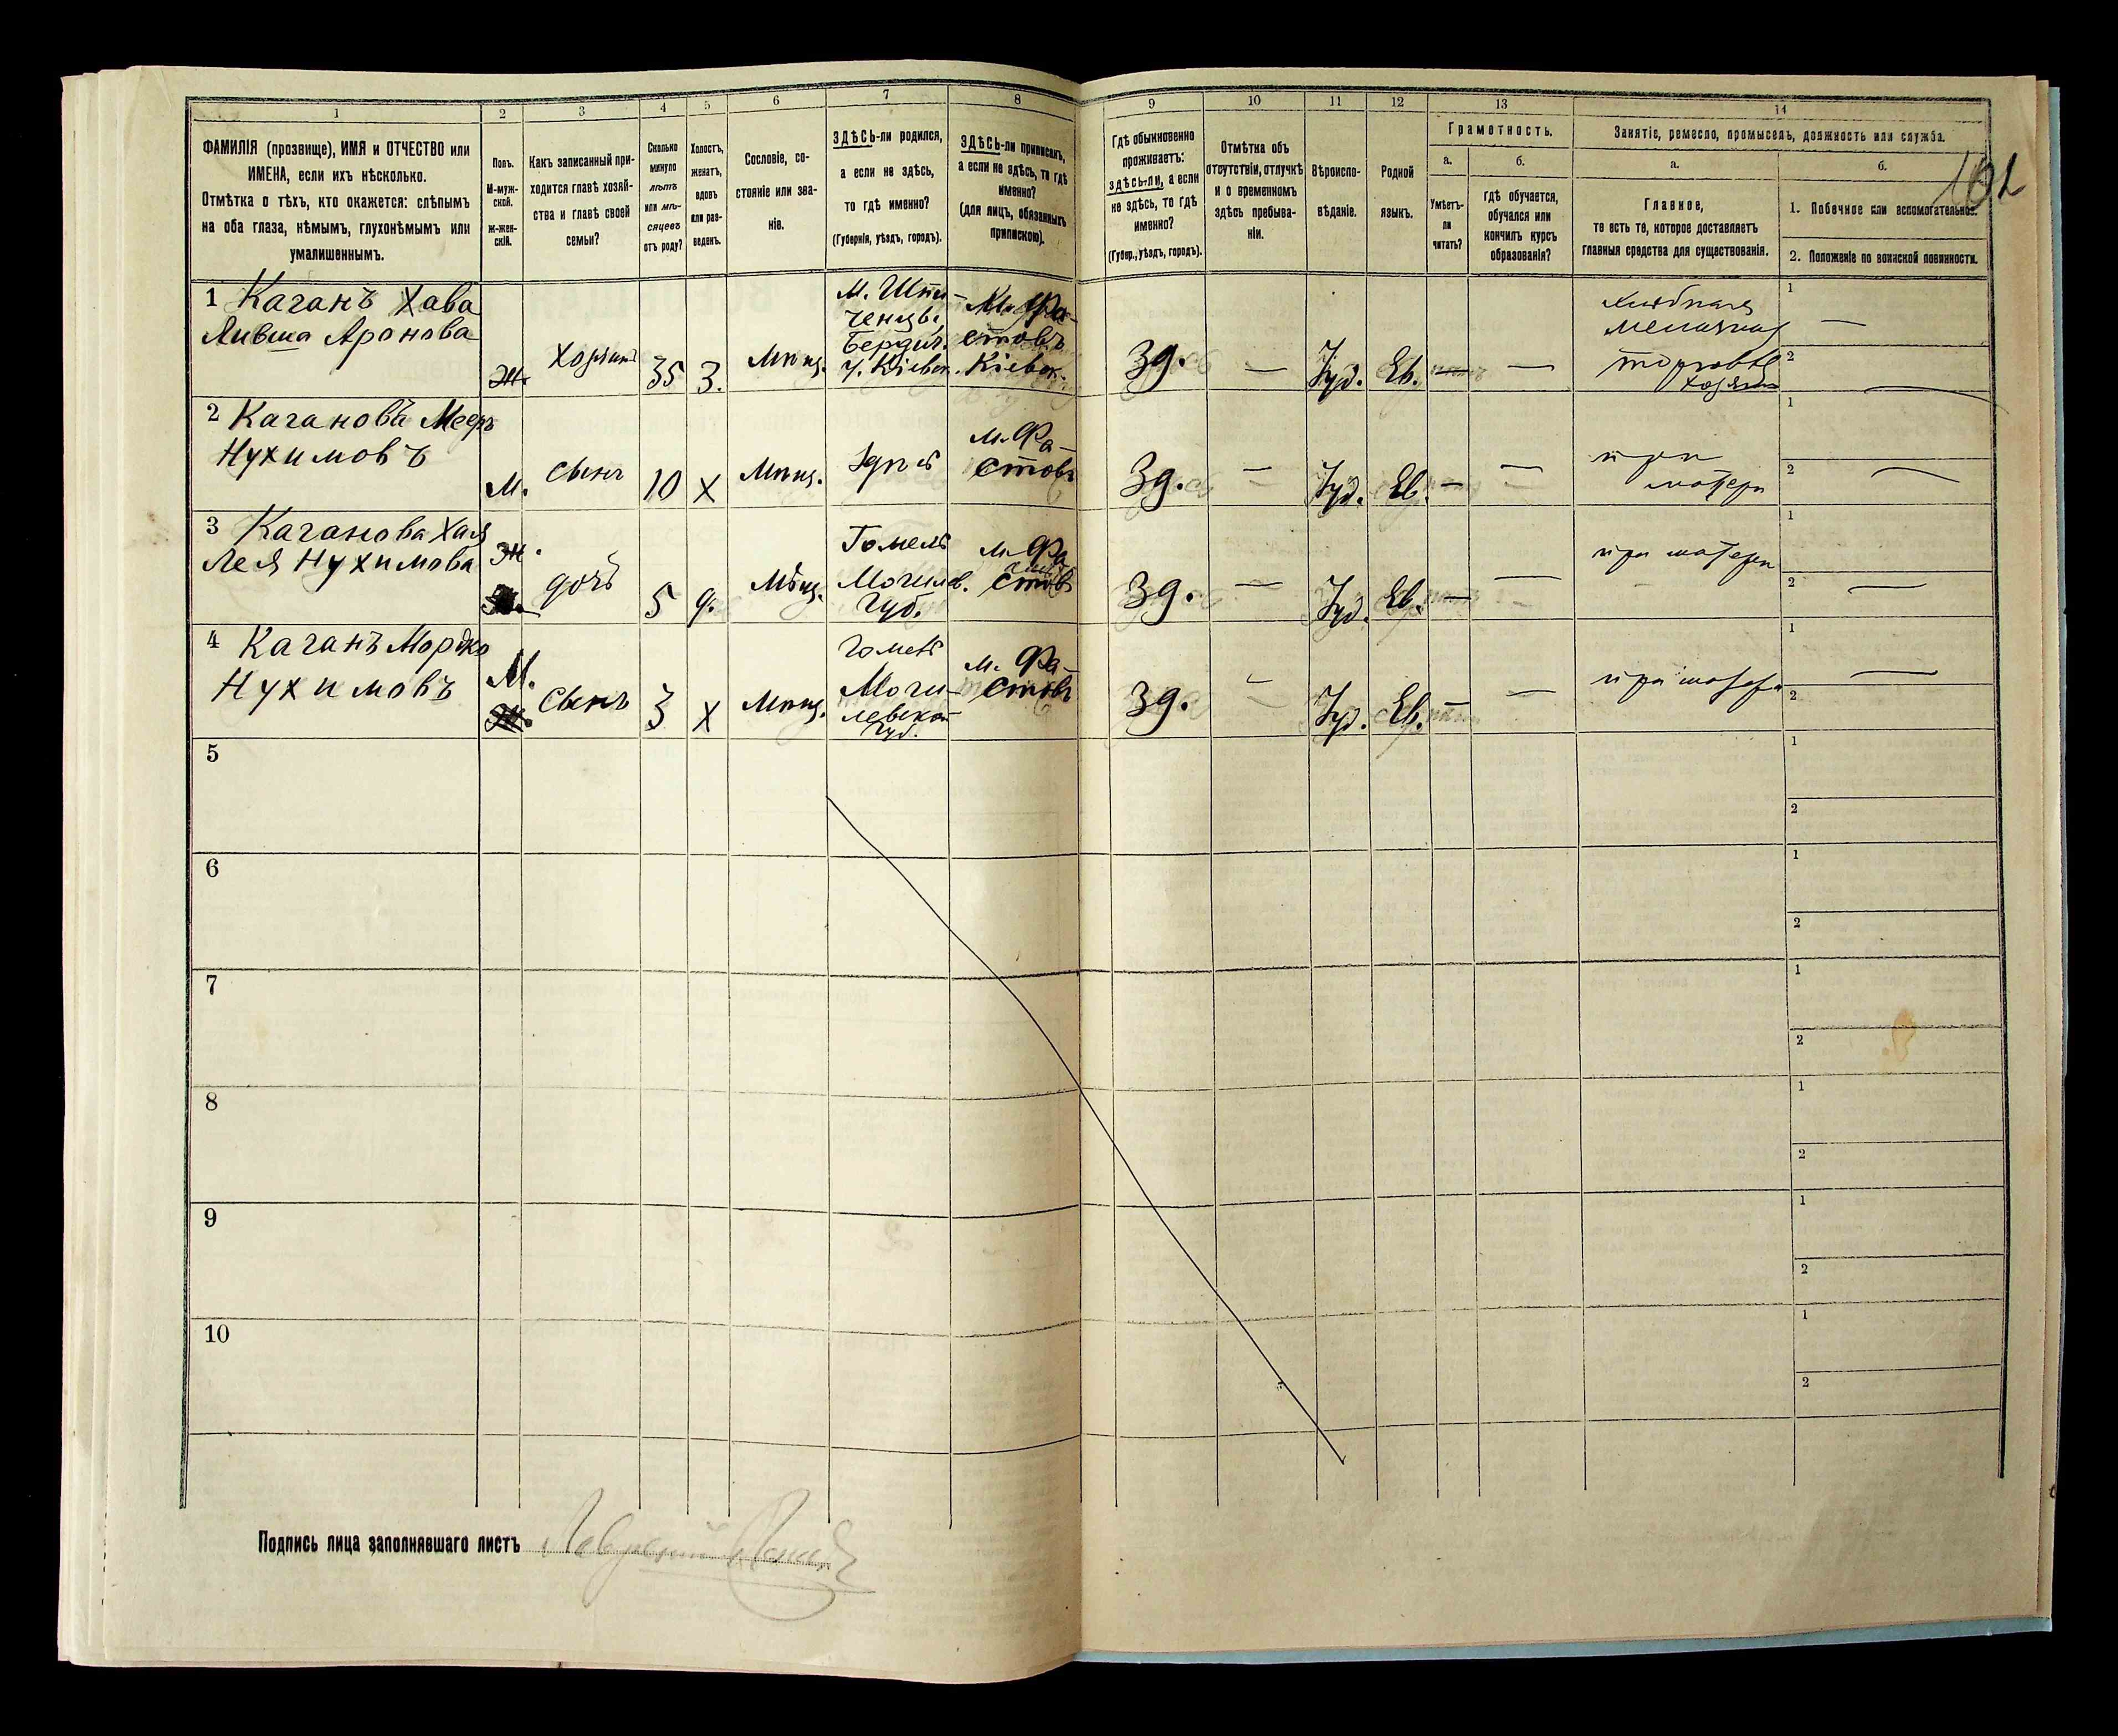 1
2
3
4
5
6
7
8
9
10
11
12
13
14
ФАМИЛІЯ (прозвище), ИМЯ и ОТЧЕСТВО или
ИМЕНА, если ихъ нѣсколько.
Отмѣтка о тѣхъ, кто окажется: слѣпымъ
на оба глаза, нѣмымъ, глухонѣмымъ или
умалишеннымъ.
Полъ.
М-муж-
ской.
ж-жен-
скій.
Какъ записанный при-
ходится главѣ хозяй-
ства и главѣ своей
семьи?
Сколько
минуло
лѣтъ
или мѣ-
сяцевъ
отъ роду?
Холостъ,
женатъ,
вдовъ
или раз-
веденъ.
Сословіе, со-
стояніе или зва-
ніе.
ЗДѢСЬ-ли родился,
а если не здѣсь,
то гдѣ именно?
(Губернія, уѣздъ, городъ).
ЗДѢСЬ-ли приписанъ,
а если не здѣсь, то гдѣ
именно?
(для лицъ, обязанныхъ
припискою).
Гдѣ обыкновенно
проживаетъ:
здѣсь-ли, а если
не здѣсь, то гдѣ
именно?
(Губер., уѣздъ, городъ).
Отмѣтка объ
отсутствіи, отлучкѣ
и о временномъ
здѣсь пребыва-
ніи.
Вѣроиспо-
вѣданіе.
Родной
языкъ.
Грамотность.
а.
Умѣетъ-
ли
читать?
б.
гдѣ обучается,
обучался или
кончилъ курсъ
образованія?
Занятіе, ремесло, промыселъ, должность или служба.
а.
Главное,
то есть то, которое доставляетъ
главныя средства для существованія.
б.
1. Побочное или вспомогательное.
2. Положеніе по воинской повинности.
1 Каганъ Хава
Ливша Аронова
Ж.
35
З.
Мѣщ.
Бердич.
у. Кіевск.
м. Фа-
стовъ
Кіевск.
Зд.
—
Іуд.
Ев.
—
—
1
—
2
2 Кагановъ Мееръ
Нухимовъ
М.
сынъ
10
Х
Мѣщ.
Здѣсь
м. Фа-
стовъ
Зд.
—
Іуд.
Ев.
—
—
при
матери
1
2
3 Каганова Хая
Лея Нухимова
Ж.
дочь
5
д.
Мѣщ.
Гомель
Могилев.
Губ.
м. Фа
стовъ
Зд.
—
Іуд.
Ев.
—
—
при матери
1
2
4 Каганъ Мордко
Нухимовъ
М.
сынъ
3
Х
Мѣщ.
Гомель
Моги-
левской
Губ.
м. Фа-
стовъ
Зд.
—
Іуд.
Ев.
—
—
при матери
1
2
5
1
2
6
1
2
7
1
2
8
1
2
9
1
2
10
1
2
Подпись лица заполнявшаго листъ